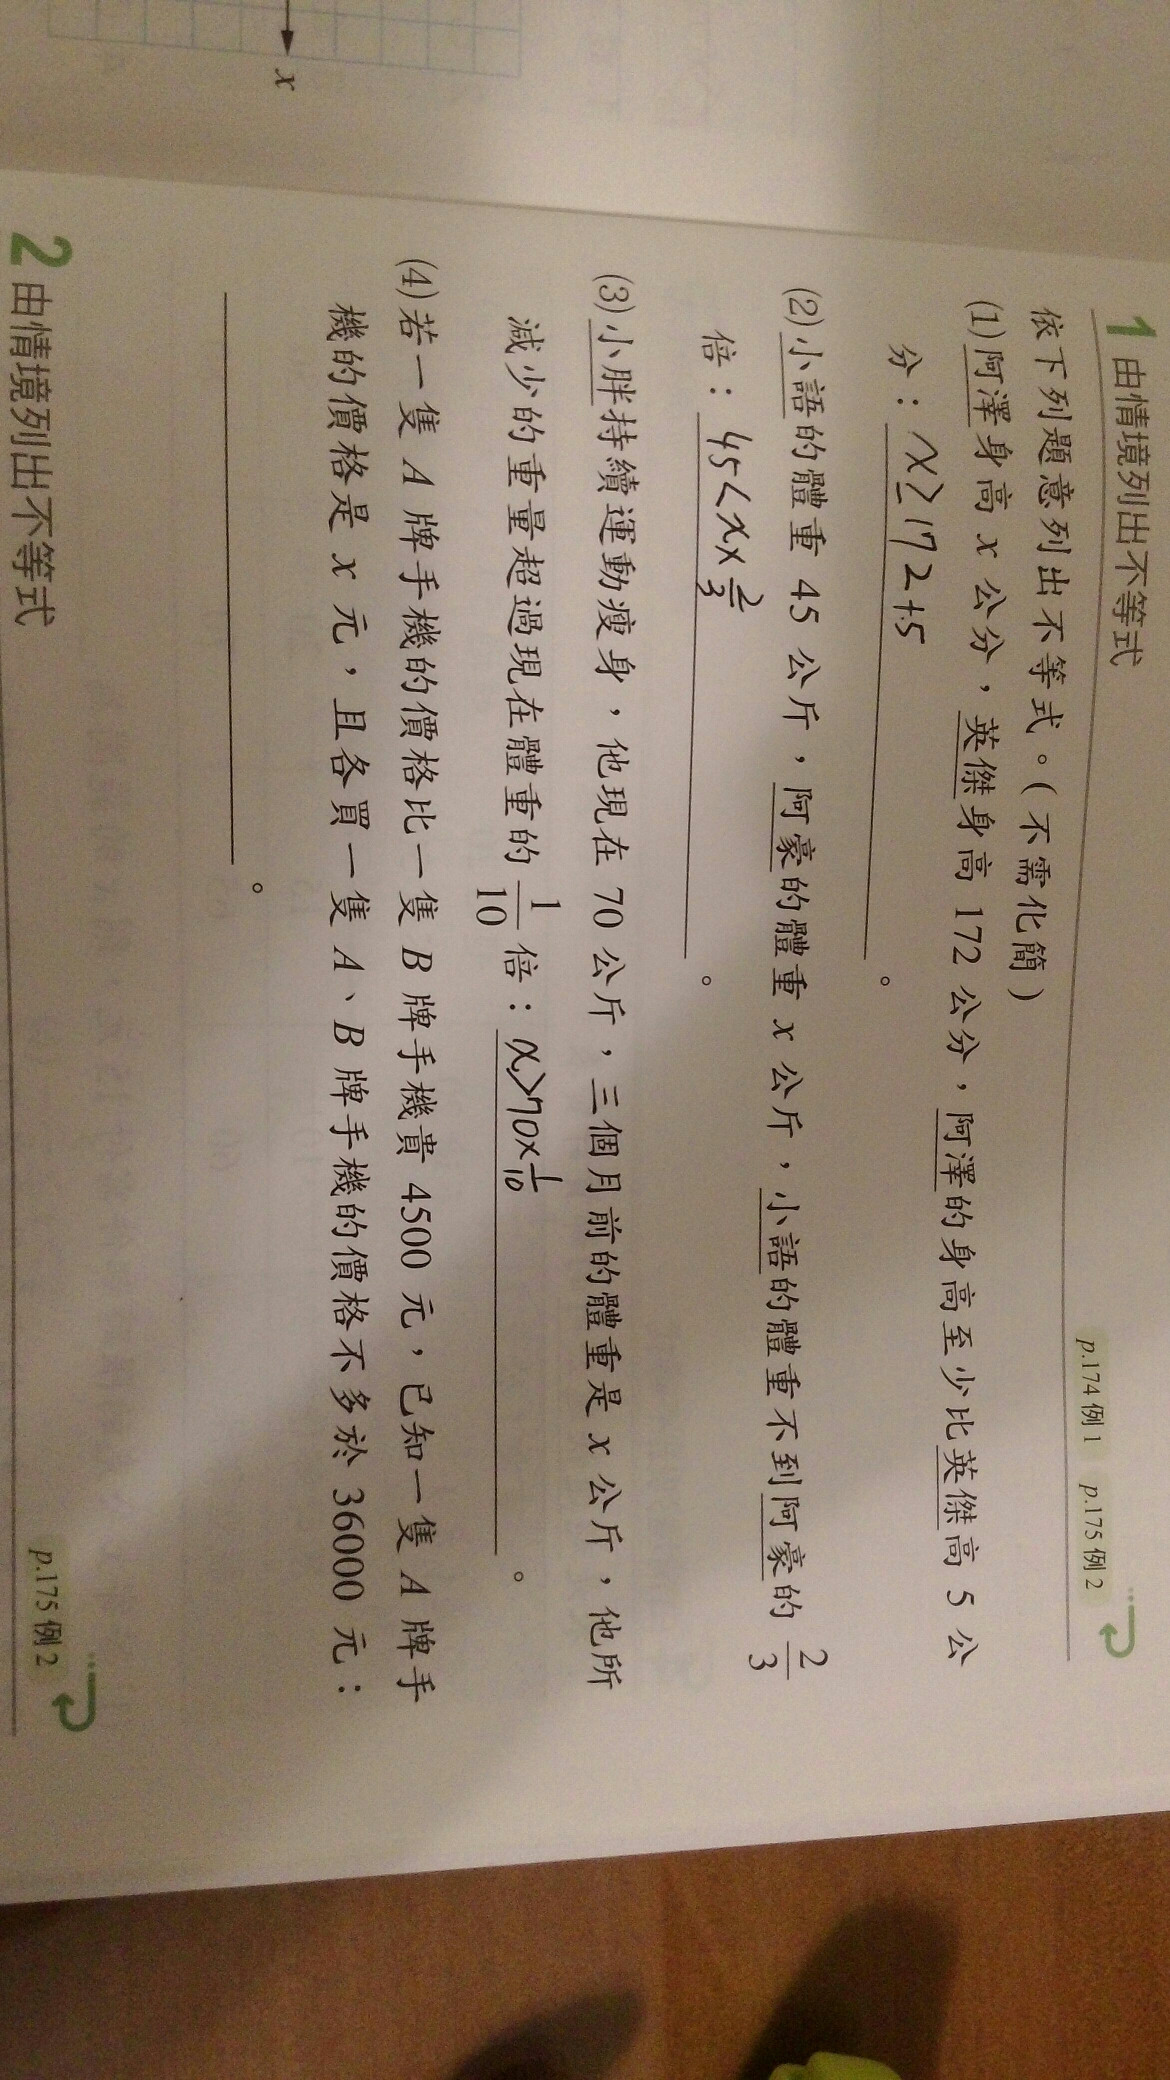 x
1 由情境列出不等式 p.174 例1 p.175 例2
依下列題意列出不等式。(不需化簡)
(1)阿澤身高 x 公分，英傑身高 172 公分，阿澤的身高至少比英傑高 5 公
分：x≥172+5。
(2)小語的體重 45 公斤，阿豪的體重 x 公斤，小語的體重不到阿豪的 2/3
倍：45<x×2/3。
(3)小胖持續運動瘦身，他現在 70 公斤，三個月前的體重是 x 公斤，他所
減少的重量超過現在體重的 1/10 倍：x>70×1/10。
(4)若一隻 A 牌手機的價格比一隻 B 牌手機貴 4500 元，已知一隻 A 牌手
機的價格是 x 元，且各買一隻 A、B 牌手機的價格不多於 36000 元：
。
2 由情境列出不等式 p.175 例2